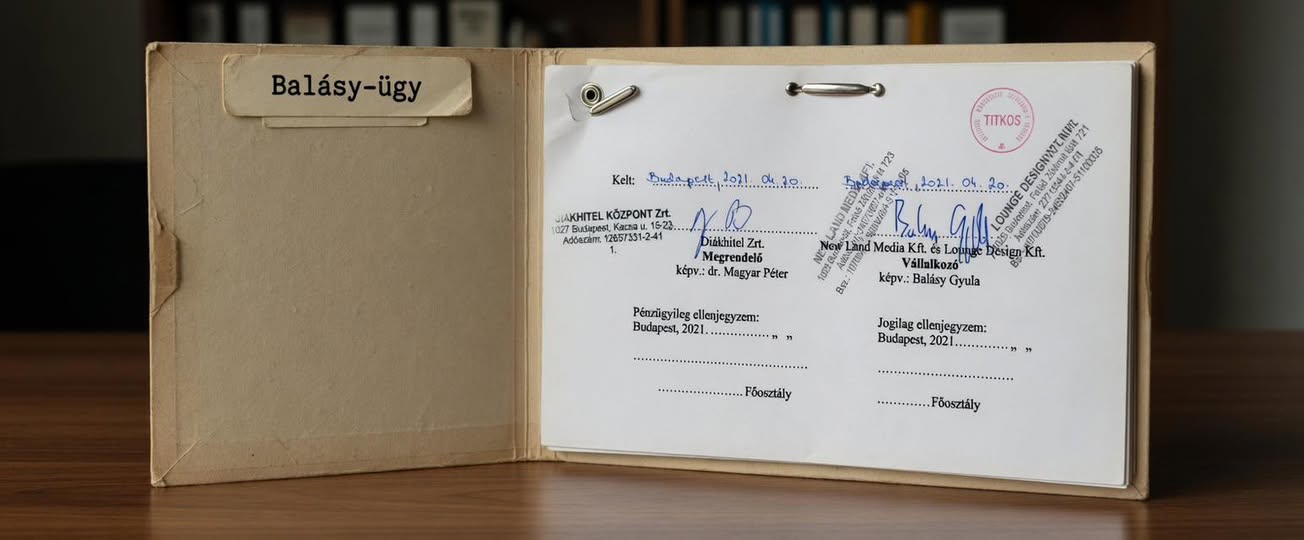 Balásy-ügy
TITKOS
Kelt: Budapest, 2021. 04. 20.
Budapest, 2021. 04. 20.
DIÁKHITEL KÖZPONT Zrt.
1027 Budapest, Kacsa u. 15-23.
Adószám: 12657331-2-41
1.
Diákhitel Zrt.
Megrendelő
képv.: dr. Magyar Péter
NEW LAND MEDIA KFT.
LOUNGE DESIGN
New Land Media Kft. és Lounge Design Kft.
Vállalkozó
képv.: Balásy Gyula
Pénzügyileg ellenjegyzem:
Budapest, 2021. ................. „ „
..................................................
........................ Főosztály
Jogilag ellenjegyzem:
Budapest, 2021.............. „ „
.......................................
............... Főosztály